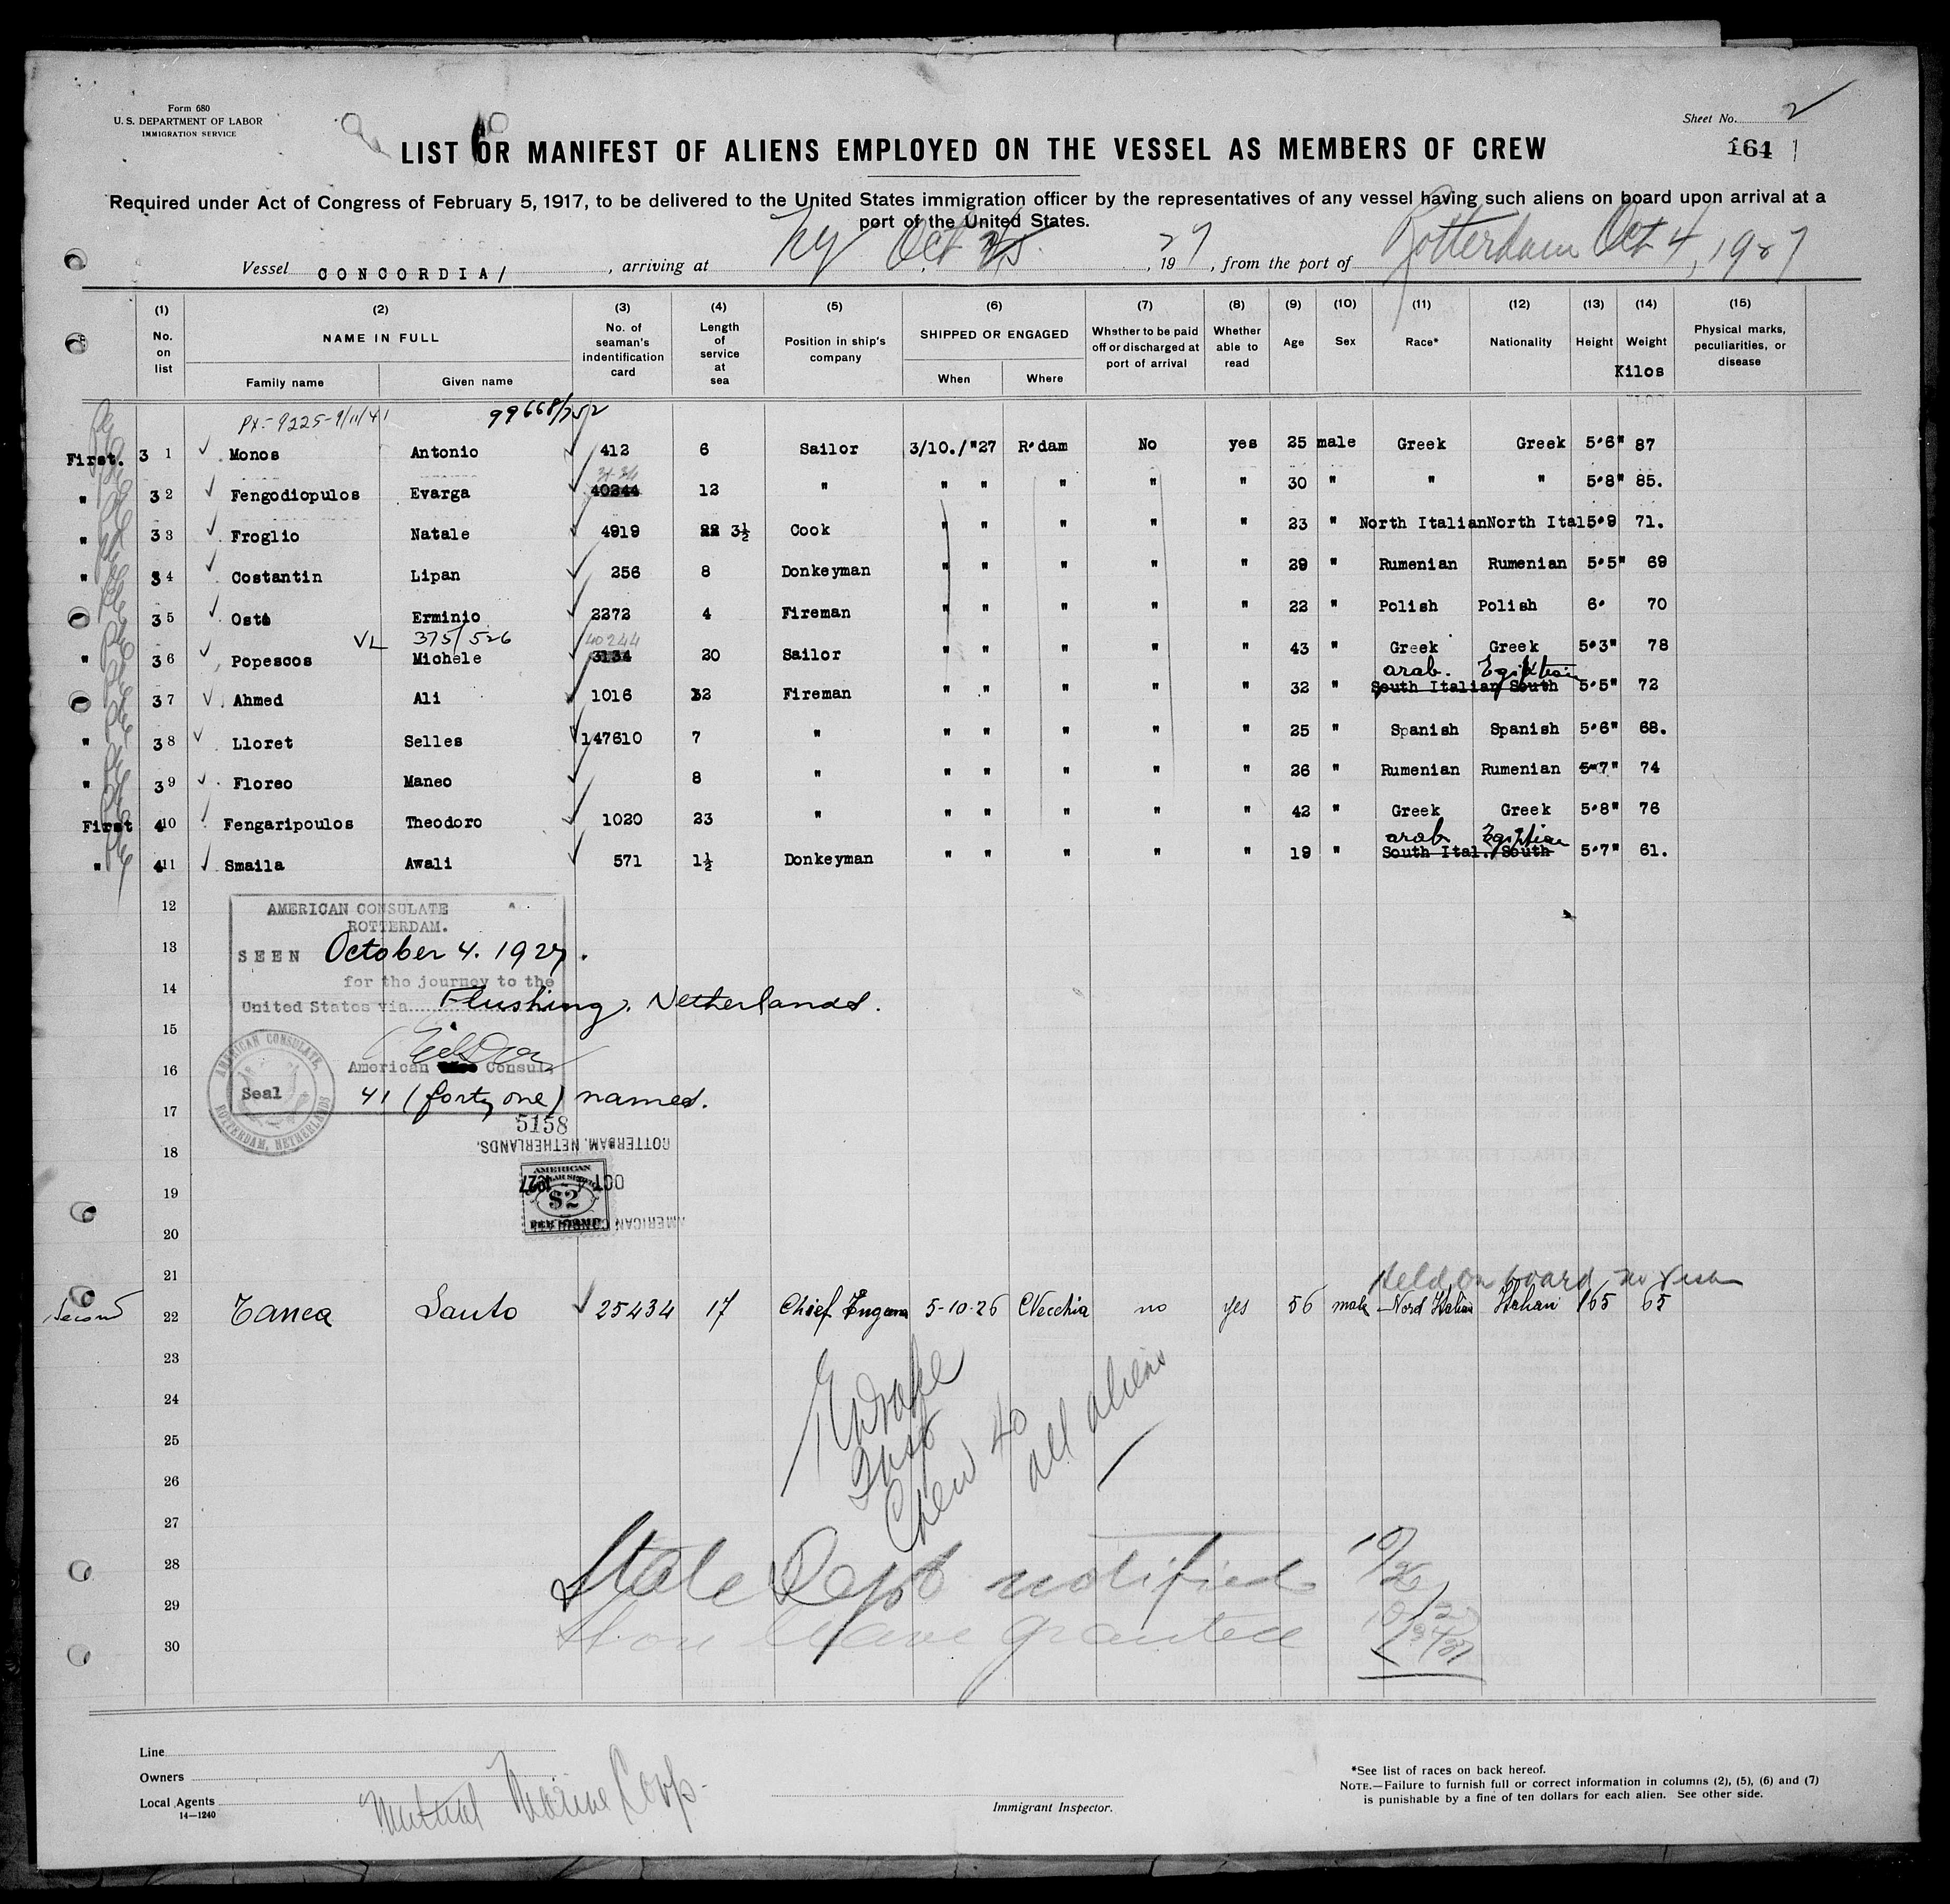 Form 680
U. S. DEPARTMENT OF LABOR
IMMIGRATION SERVICE
Sheet No. 2
164
LIST OR MANIFEST OF ALIENS EMPLOYED ON THE VESSEL AS MEMBERS OF CREW
Required under Act of Congress of February 5, 1917, to be delivered to the United States immigration officer by the representatives of any vessel having such aliens on board upon arrival at a
port of the United States.
Vessel CONCORDIA/ , arriving at Ny Oct , 1927 , from the port of Rotterdam Oct 4, 1927
(1) (2) (3) (4) (5) (6) (7) (8) (9) (10) (11) (12) (13) (14) (15)
No. on list NAME IN FULL Family name Given name No. of seaman's indentification card Length of service at sea Position in ship's company SHIPPED OR ENGAGED When Where Whether to be paid off or discharged at port of arrival Whether able to read Age Sex Race* Nationality Height Weight Kilos Physical marks, peculiarities, or disease
PX-9225-9/11/41 99668/752
First. 3 1 Monos Antonio 412 6 Sailor 3/10./"27 R'dam No yes 25 male Greek Greek 5'6" 87
3134
" 3 2 Fengodiopulos Evarga 40244 12 " " " " " " 30 " " " 5'8" 85.
" 3 3 Froglio Natale 4919 22 3½ Cook " " " " " 23 " North Italian North Ital 5'9 71.
" 3 4 Costantin Lipan 256 8 Donkeyman " " " " " 29 " Rumenian Rumenian 5'5" 69
3 5 Osta Erminio 2272 4 Fireman " " " " " 22 " Polish Polish 6' 70
VL 375/526 40244
" 3 6 Popescos Michele 3134 20 Sailor " " " " " 43 " Greek Greek 5'3" 78
arab. Egiptian
3 7 Ahmed Ali 1016 12 Fireman " " " " " 32 " South Italian South 5'5" 72
" 3 8 Lloret Selles 147610 7 " " " " " " 25 " Spanish Spanish 5'6" 68.
" 3 9 Floreo Maneo 8 " " " " " " 26 " Rumenian Rumenian 5"7" 74
First 4 10 Fengaripoulos Theodoro 1020 23 " " " " " " 42 " Greek Greek 5'8" 76
arab Egiptian
" 4 11 Smaila Awali 571 1½ Donkeyman " " " " " 19 " South Ital. South 5'7" 61.
12
AMERICAN CONSULATE
ROTTERDAM.
13
SEEN October 4. 1927.
for the journey to the
14
United States via Flushing, Netherlands.
15
16
American Consul,
AMERICAN CONSULATE, ROTTERDAM, NETHERLANDS
Seal 41 (forty one) names.
17
5158
ROTTERDAM, NETHERLANDS.
18
AMERICAN
OCT 4 1927
19
$2
AMERICAN CONSULATE
20
21
Held on board no visa
Second 22 Tanca Santo 25434 17 Chief Engeneer 5-10-26 CVecchia no yes 56 male Nord Italian Italian 165 65
23
24
25
26
27
28
29
30
Drake
Insp
Crew 40
all aliens
State Dept notified 10/26
Shore leave granted
Line
Owners
Local Agents Mutual Marine Corp.
14—1240
Immigrant Inspector.
*See list of races on back hereof.
NOTE.—Failure to furnish full or correct information in columns (2), (5), (6) and (7)
is punishable by a fine of ten dollars for each alien. See other side.